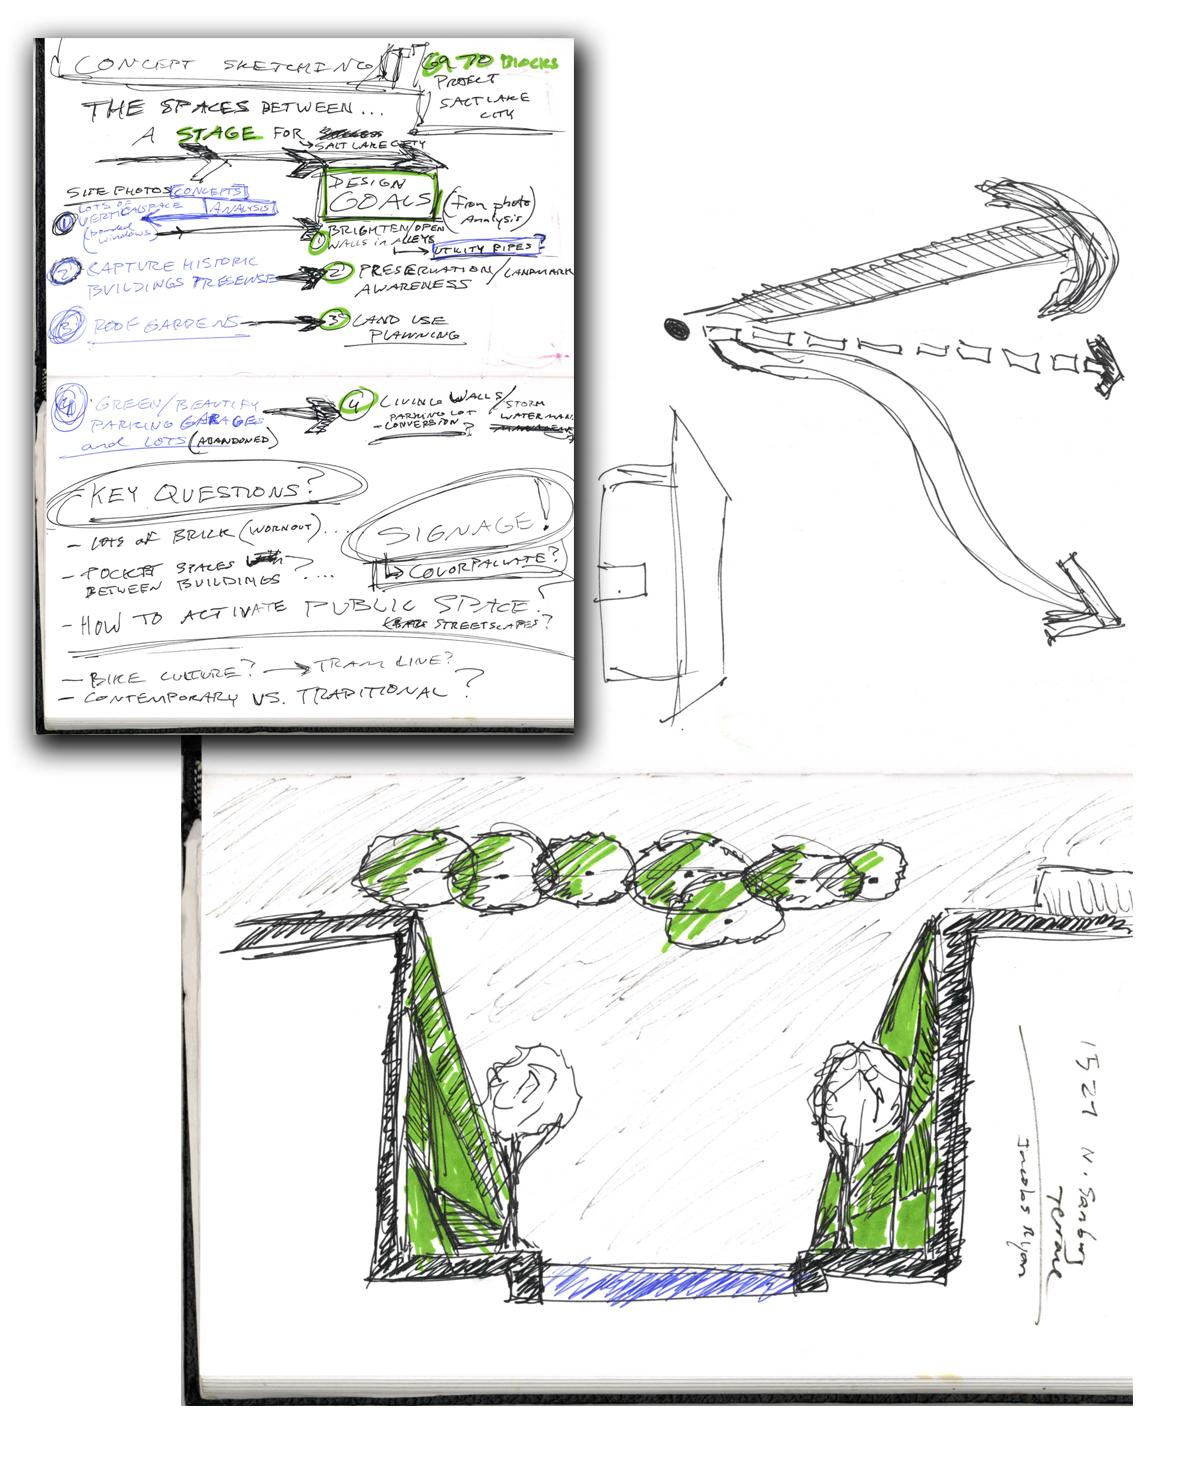 CONCEPT SKETCHING
69 70 Blocks
PROJECT
SALT LAKE
CITY
THE SPACES BETWEEN...
A STAGE FOR
SALT LAKE CITY
SITE PHOTOS CONCEPTS
ANALYSIS
1 LOTS OF
VERTICAL SPACE
(bounded
windows)
DESIGN
GOALS
(from photo
Analysis)
1 BRIGHTEN/OPEN
WALLS in ALLEYS
UTILITY PIPES?
2 CAPTURE HISTORIC
BUILDINGS PRESENSE
2 PRESERVATION/LANDMARK
AWARENESS
3 ROOF GARDENS
3 LAND USE
PLANNING
4 GREEN/BEAUTIFY
PARKING GARAGES
and LOTS (ABANDONED)
4 LIVING WALLS/STORM
WATER MAN
PARKING LOT
- CONVERSION?
- KEY QUESTIONS?
- LOTS OF BRICK (WORNOUT)....
SIGNAGE!
COLORPALLATE?
- POCKET SPACES
BETWEEN BUILDINGS?....
- HOW TO ACTIVATE PUBLIC SPACE?
STREETSCAPES?
- BIKE CULTURE? → TRAM LINE?
- CONTEMPORARY VS. TRADITIONAL?
1527 N. Sanburg
Terrace
Jacobs Ryan